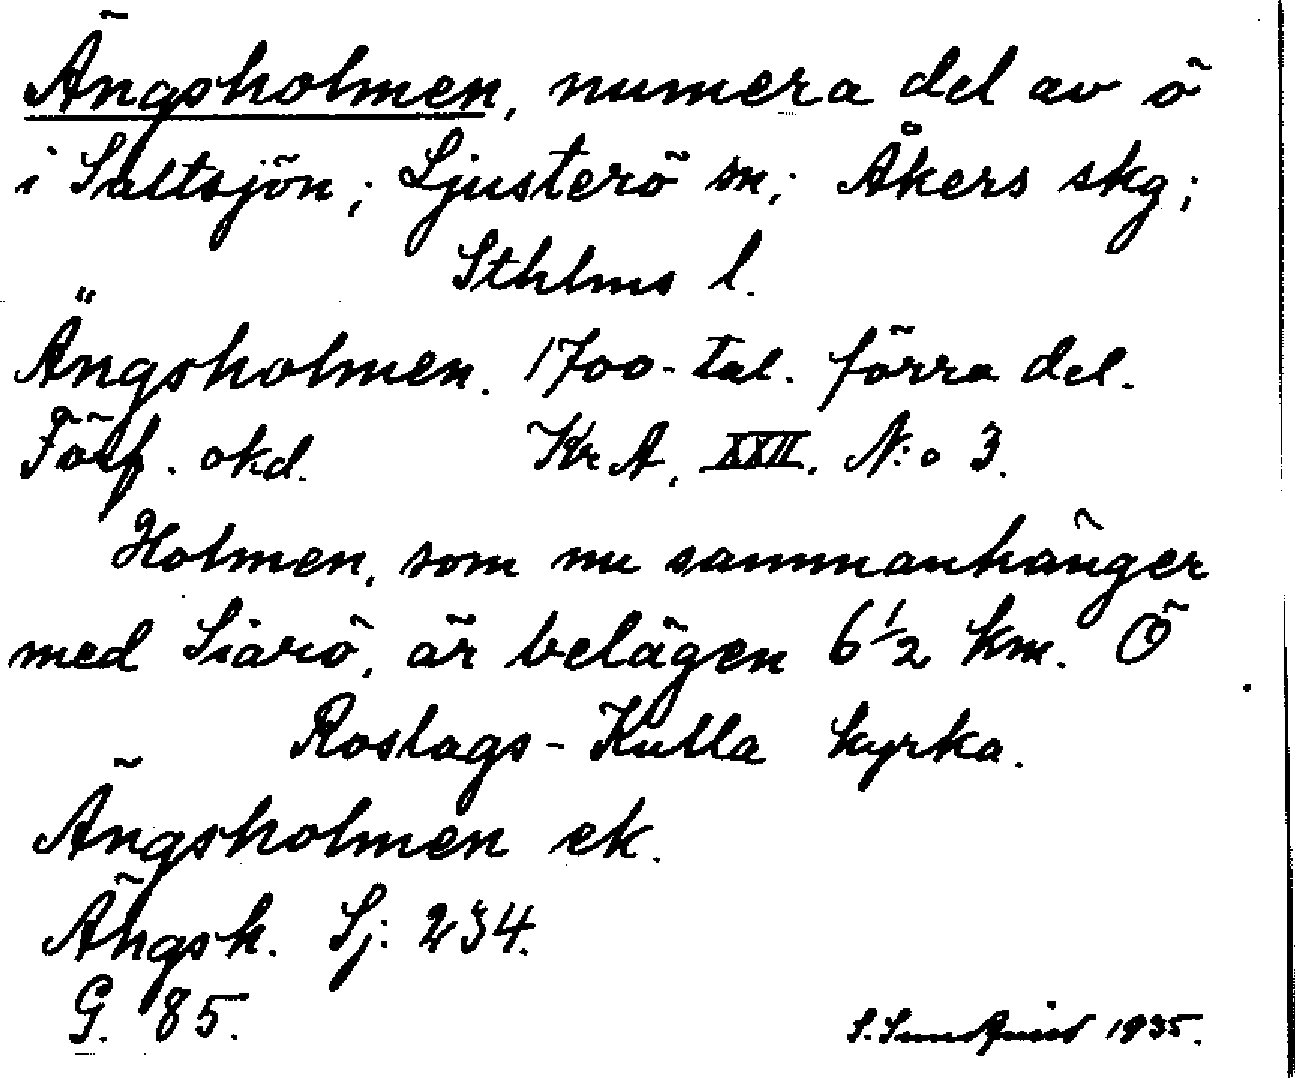 Ängsholmen, numera del av ö
i Saltsjön; Ljusterö sn; Åkers skg;
Sthlms l.
Ängsholmen. 1700-tal. förra del.
Förf. okd. Kr A. XXII. N:o 3.
Holmen, som nu sammanhänger
med Siarö, är belägen 6 1/2 km. Ö
Roslags-Kulla kyrka.
Ängsholmen ek.
Ängsh. Sj: 234.
G. 85.
S. Sundquist 1935.